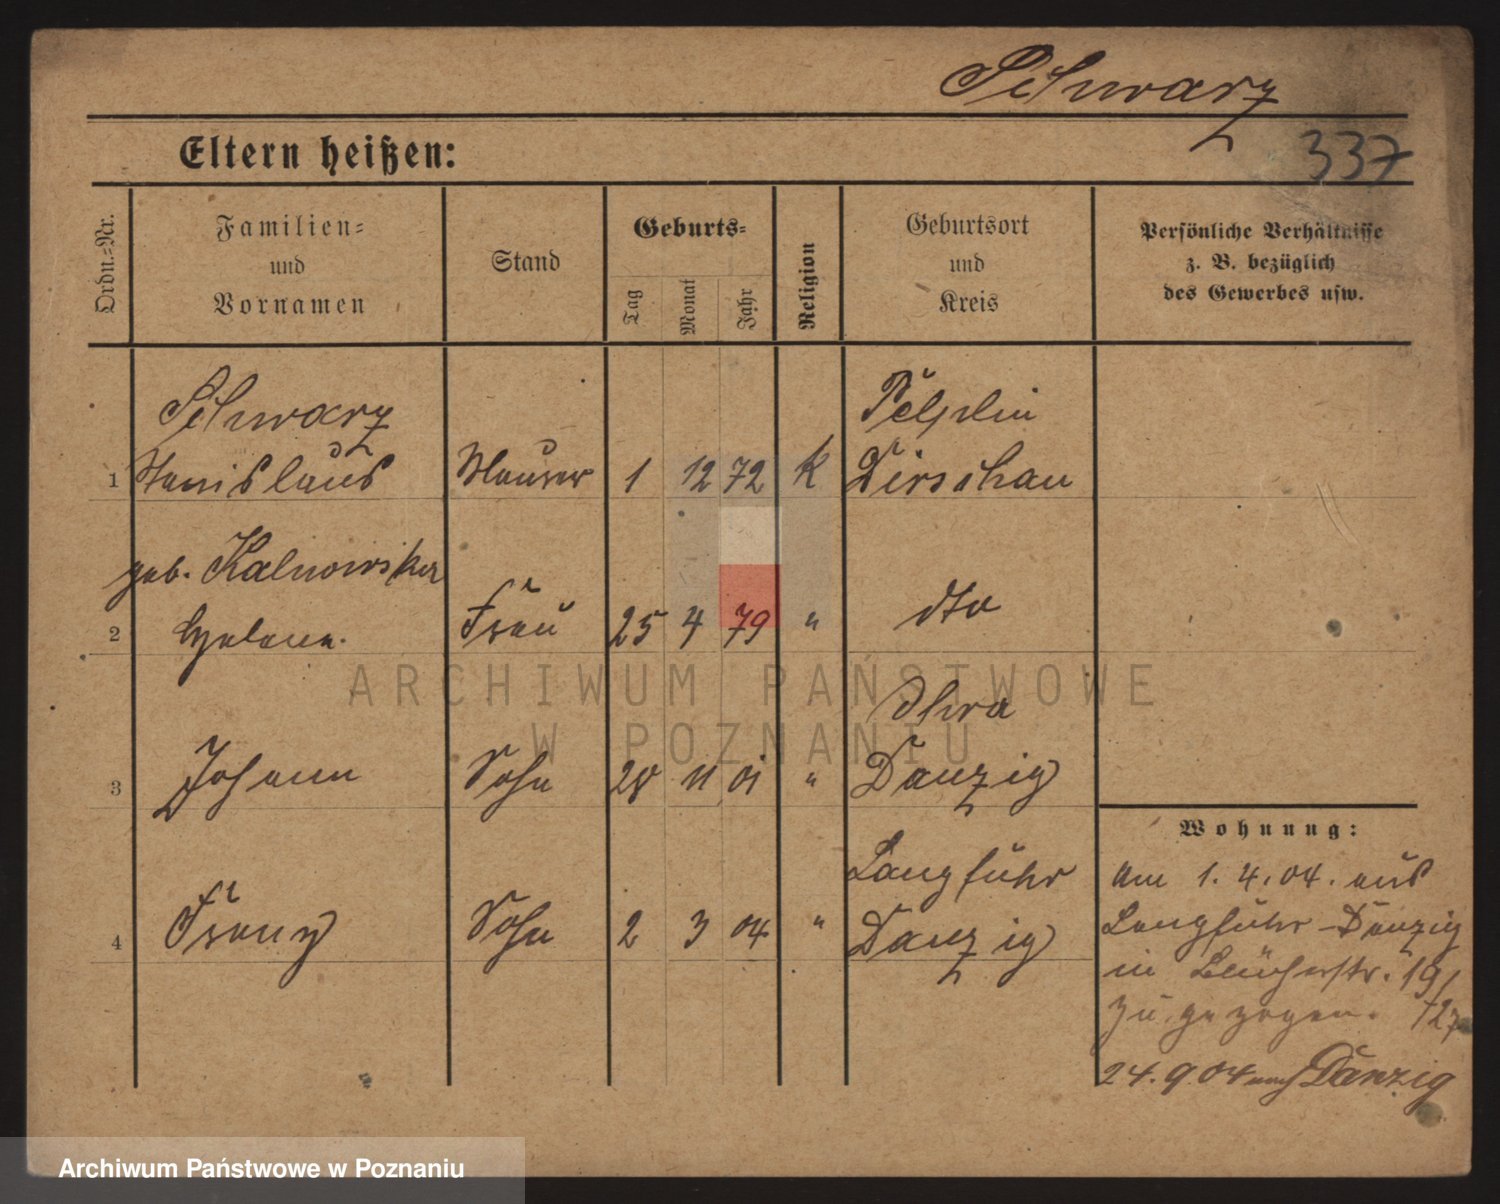 Schwarz
337
Eltern heißen:
Ordn.=Nr.
Familien=
und
Vornamen
Stand
Geburts=
Tag
Monat
Jahr
Religion
Geburtsort
und
Kreis
Persönliche Verhältnisse
z. B. bezüglich
des Gewerbes usw.
Schwarz Pelplin
1 Stanislaus Maurer 1 12 72 K Dirschau
geb. Kalnowska
2 Helene. Frau 25 4 79 " dto
Ohra
3 Johann Sohn 28 11 01 " Danzig
Langfuhr
4 Franz Sohn 2 3 04 " Danzig
Wohnung:
Am 1.4.04. aus
Langfuhr-Danzig
in Blücherstr. 19/
zugezogen.
24.9.04 nach Danzig
ARCHIWUM PAŃSTWOWE
W POZNANIU
Archiwum Państwowe w Poznaniu